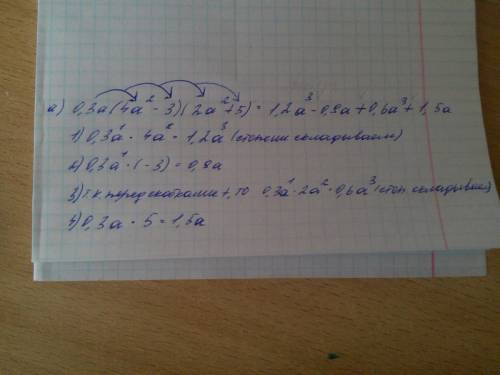 а) 0,3a(4a² - 3)(2a²+5) = 1,2a³ - 0,9a + 0,6a³ + 1,5a
1) 0,3a¹ · 4a² = 1,2a³ (степени складываем)
2) 0,3a¹ · (-3) = 0,9a
3) т.к перед скобками +, то 0,3a¹ · 2a² · 0,6a³ (степ складываем)
4) 0,3a · 5 = 1,5a